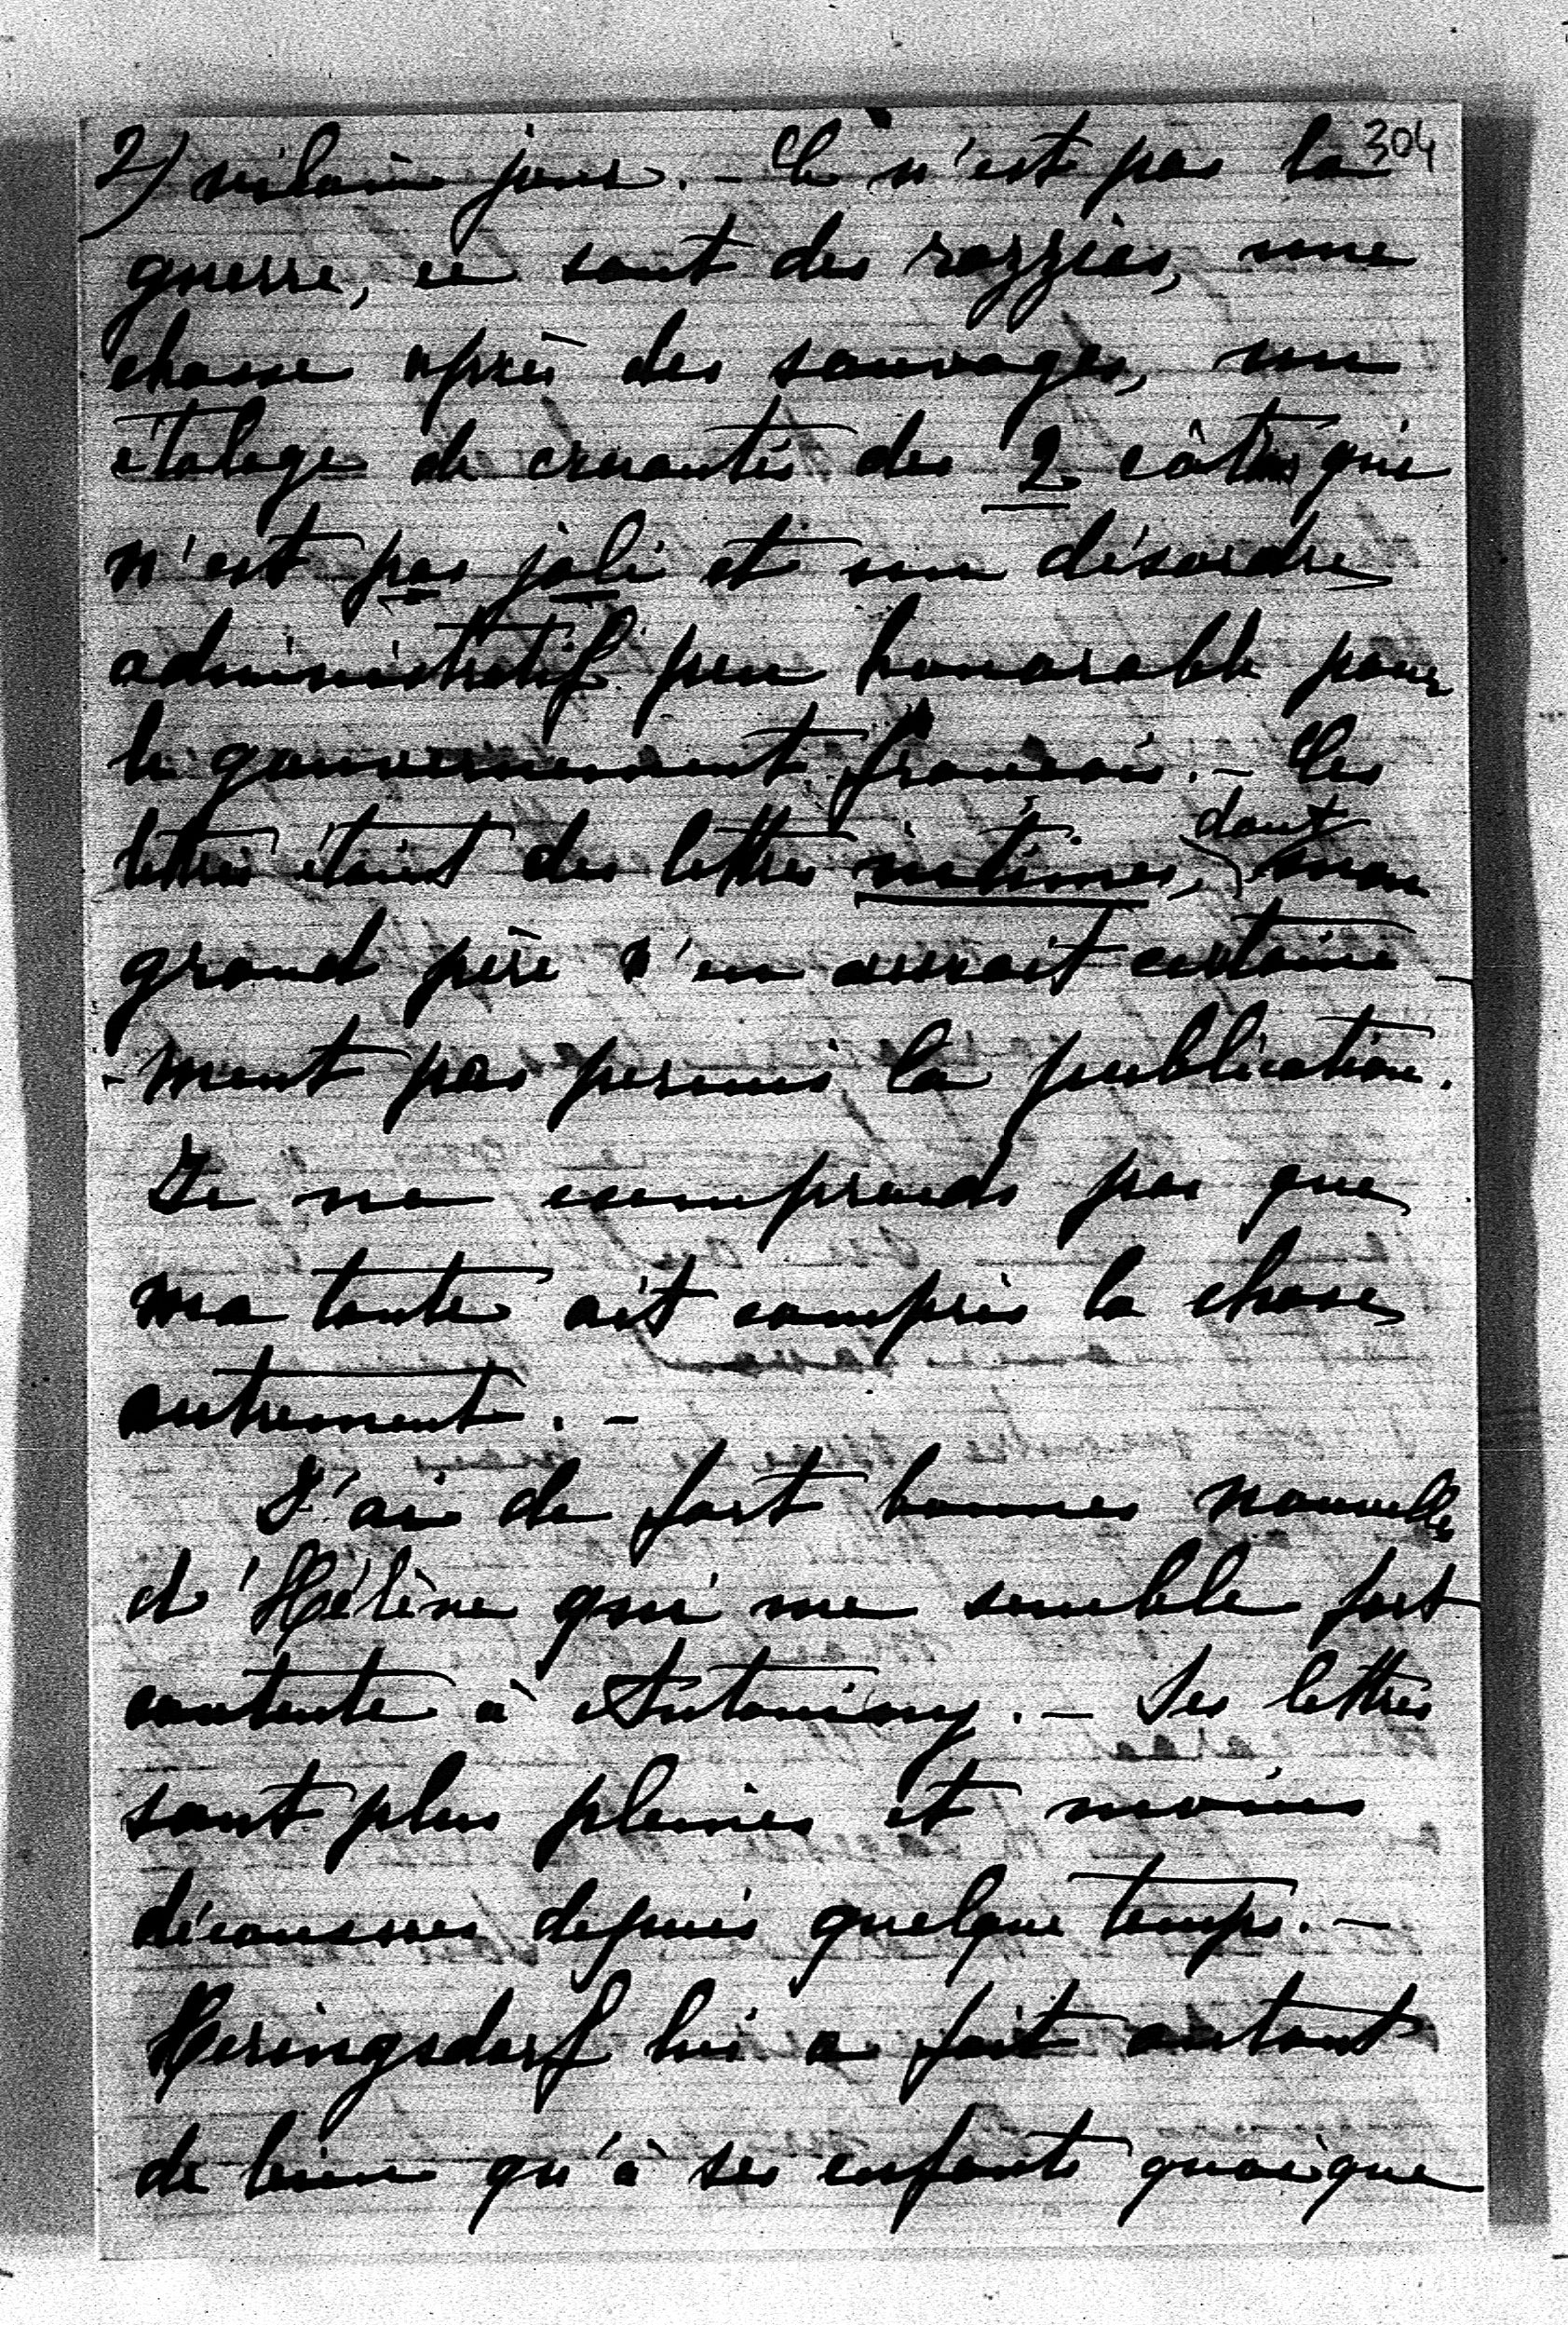 304
2) vilain jour. – Ce n'est pas la
guerre, ce sont des razzias, une
chasse après des sauvages, un
étalage de cruautés des 2 côtés qui
n'est pas joli et un désordre
administratif peu honorable pour
le gouvernement français. – Ces
lettres étaient des lettres intimes, dont mon
grand père n'en aurait certaine-
-ment pas permis la publication.
Je ne comprends pas que
ma tante ait compris la chose
autrement. –
J'ai de fort bonnes nouvelles
d'Hélène qui me semble fort
contente à Antoniny. – Ses lettres
sont plus pleines et moins
décousues depuis quelque temps. –
Heringsdorf lui a fait autant
de bien qu'à ses enfants quoique